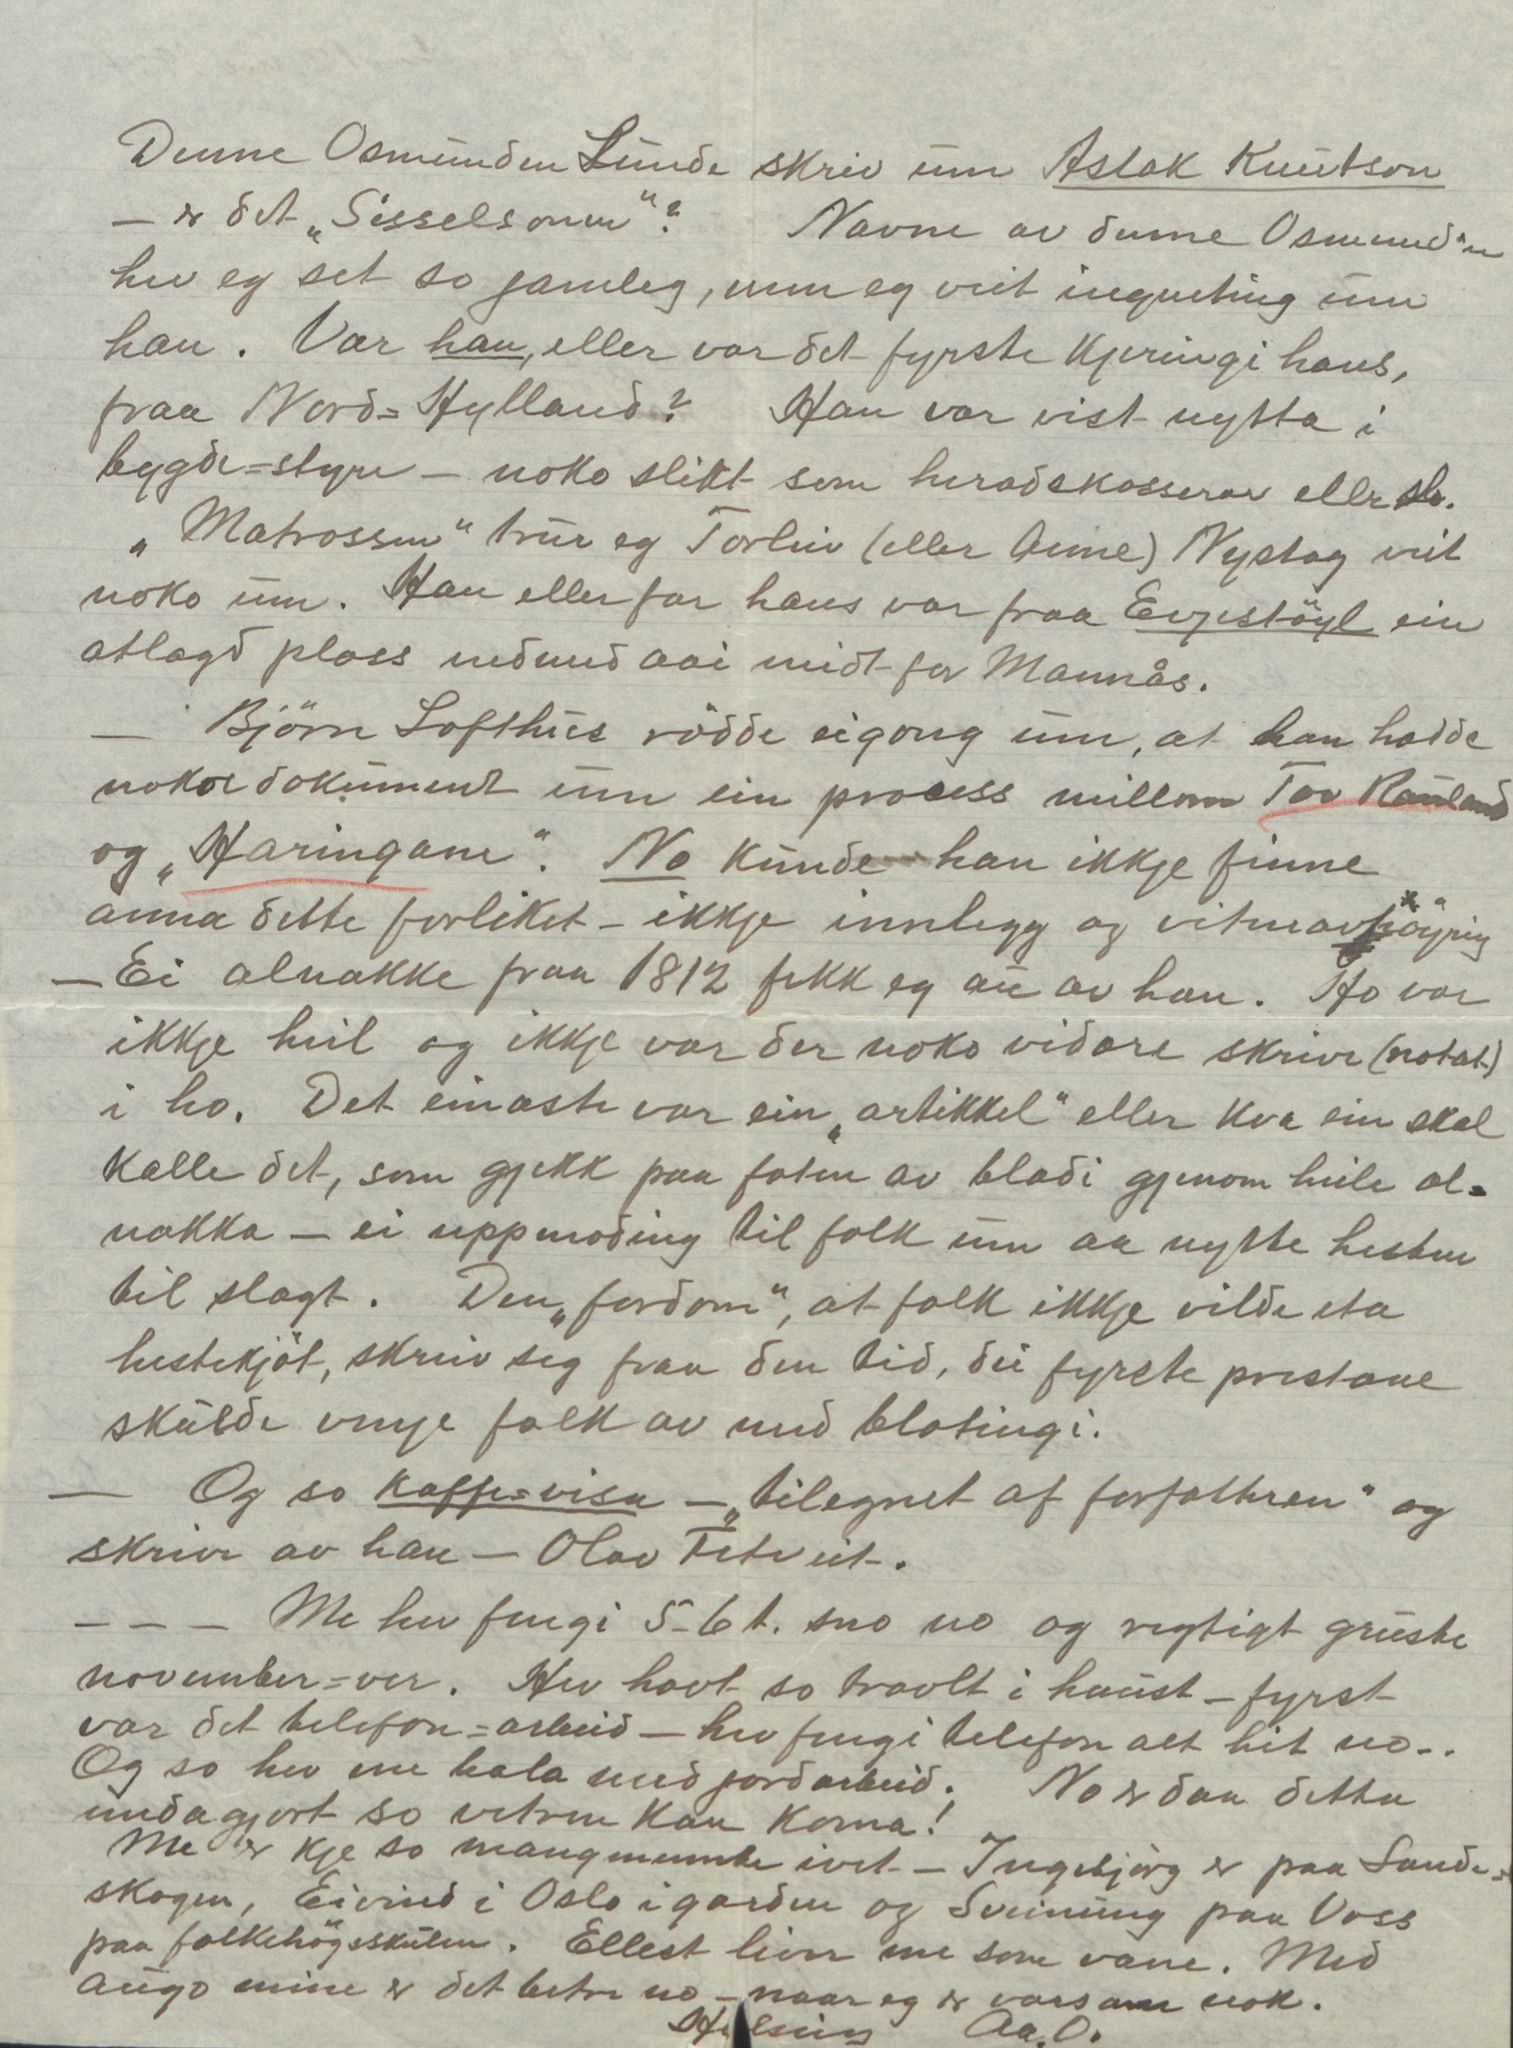 Denne Osmunden Lunde skriv um Aslak Knutson
— er det „Sisselsonen“? Navne av denne Osmund'n
hev eg set so jamleg, men eg veit ingenting um
han. Var han, eller var det fyrste kjeringi hans,
fraa Nord=Hylland? Han var vist nytta i
bygde=styre — noko slikt som heradskasserar eller slo.
„Matrossen“ trur eg Torleiv (eller Anne) Nystog veit
noko um. Han eller far hans var fraa Evjestöyl ein
atlagd plass nedmed aai midt for Mannås.
— Björn Lofthus rödde eigong um, at han hadde
nokre dokument um ein process millom Tov Rauland
og „Haringane“. No kunde han ikkje finne
anna dette forliket — ikkje innlegg og vitneavhöyring
— Ei alnakke fraa 1812 fekk eg au av han. Ho var
ikkje heil og ikkje var der noko vidare skrive (notat)
i ho. Det einaste var ein „artikkel“ eller kva ein skal
kalle det, som gjekk paa foten av bladi gjenom heile al=
nakka — ei uppmoding til folk um aa nytte hesten
til slagt. Den „fordom“, at folk ikkje vilde eta
hestekjöt, skreiv seg fraa den tid, dei fyrste prestane
skulde venje folk av med blotingi.
— Og so kaffe=visa — „tilegnet af forfatteren“ og
skrive av han — Olav Tetveit.
— — — Me hev fengi 5-6 t. sno no og regtigt gruste
november=ver. Hev havt so travlt i haust — fyrst
var det telefon=arbeid — hev fengi telefon alt hit no..
Og so hev me hala med jordarbeid. No er daa detta
undagjort so vetren kan koma!
Me er kje so mangmennte ivet — Ingebjörg er paa Sande=
skogen, Eivind i Oslo i garden og Sveinung paa Voss
paa folkehögsskulen. Ellest liver me som vane. Med
augo mine er det betre no — naar eg er varsam nok.
Helsing Aa. O.